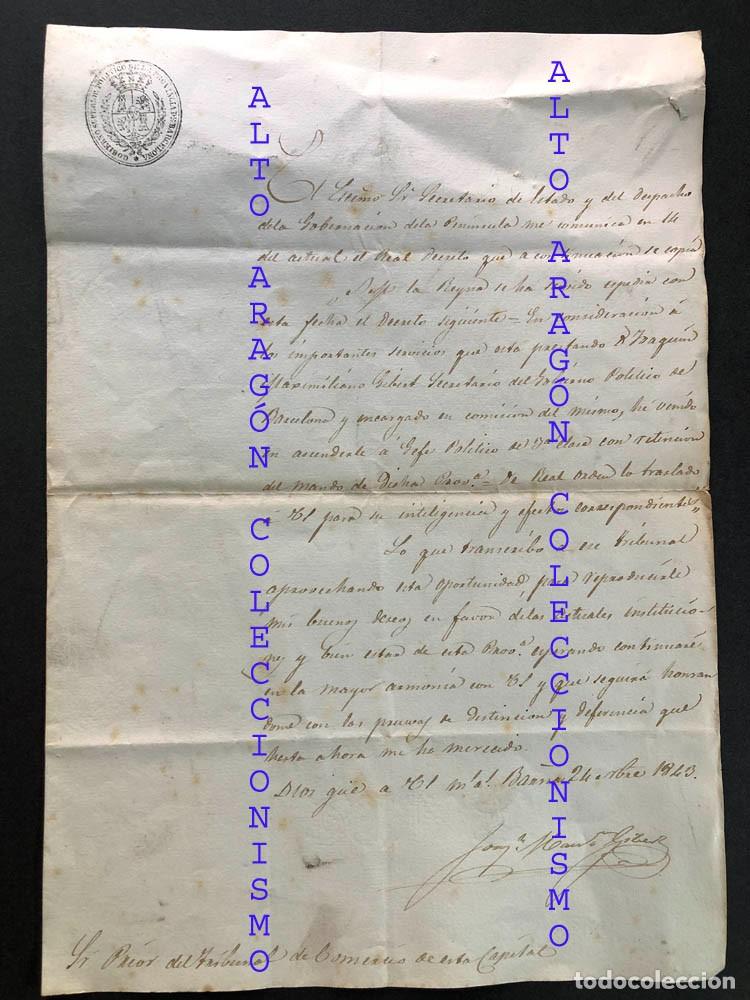 GOBIERNO SUPERIOR POLITICO DE LA PROVINCIA DE BARCELONA
El Escmo Sr Secretario de Estado y del despacho
de la Gobernacion de la Peninsula me comunica en 14
del actual el Real Decreto que a continuacion se copia
S. M. la Reyna se ha servido espedir con
esta fecha el decreto siguiente = En consideración á
los importantes servicios que esta prestando Dn Joaquin
Maximiliano Gibert Secretario del Gobierno Politico de
Barcelona y encargado en comision del mismo, hé venido
en ascenderle á Gefe Politico de 3ª clase con retencion
del mando de Dicha Provª = De Real orden lo traslado
á VS para su inteligencia y efectos correspondientes"
Lo que transcribo á ese Tribunal
aprovechando esta oportunidad para reproducirle
mis buenos deseos en favor de las actuales institucio-
nes y bien estar de esta Provª esperando continuaré
en la mayor armonía con VS y que seguirá honran
dome con las pruevas de distincion y deferencia que
hasta ahora me ha merecido.
Dios gue a VS ms as. Barna 24 1843.
Joaqn Maxno Gibert
Sr Prior del Tribunal de Comercio de esta Capital
ALTO ARAGÓN COLECCIONISMO
ALTO ARAGÓN COLECCIONISMO
todocoleccion